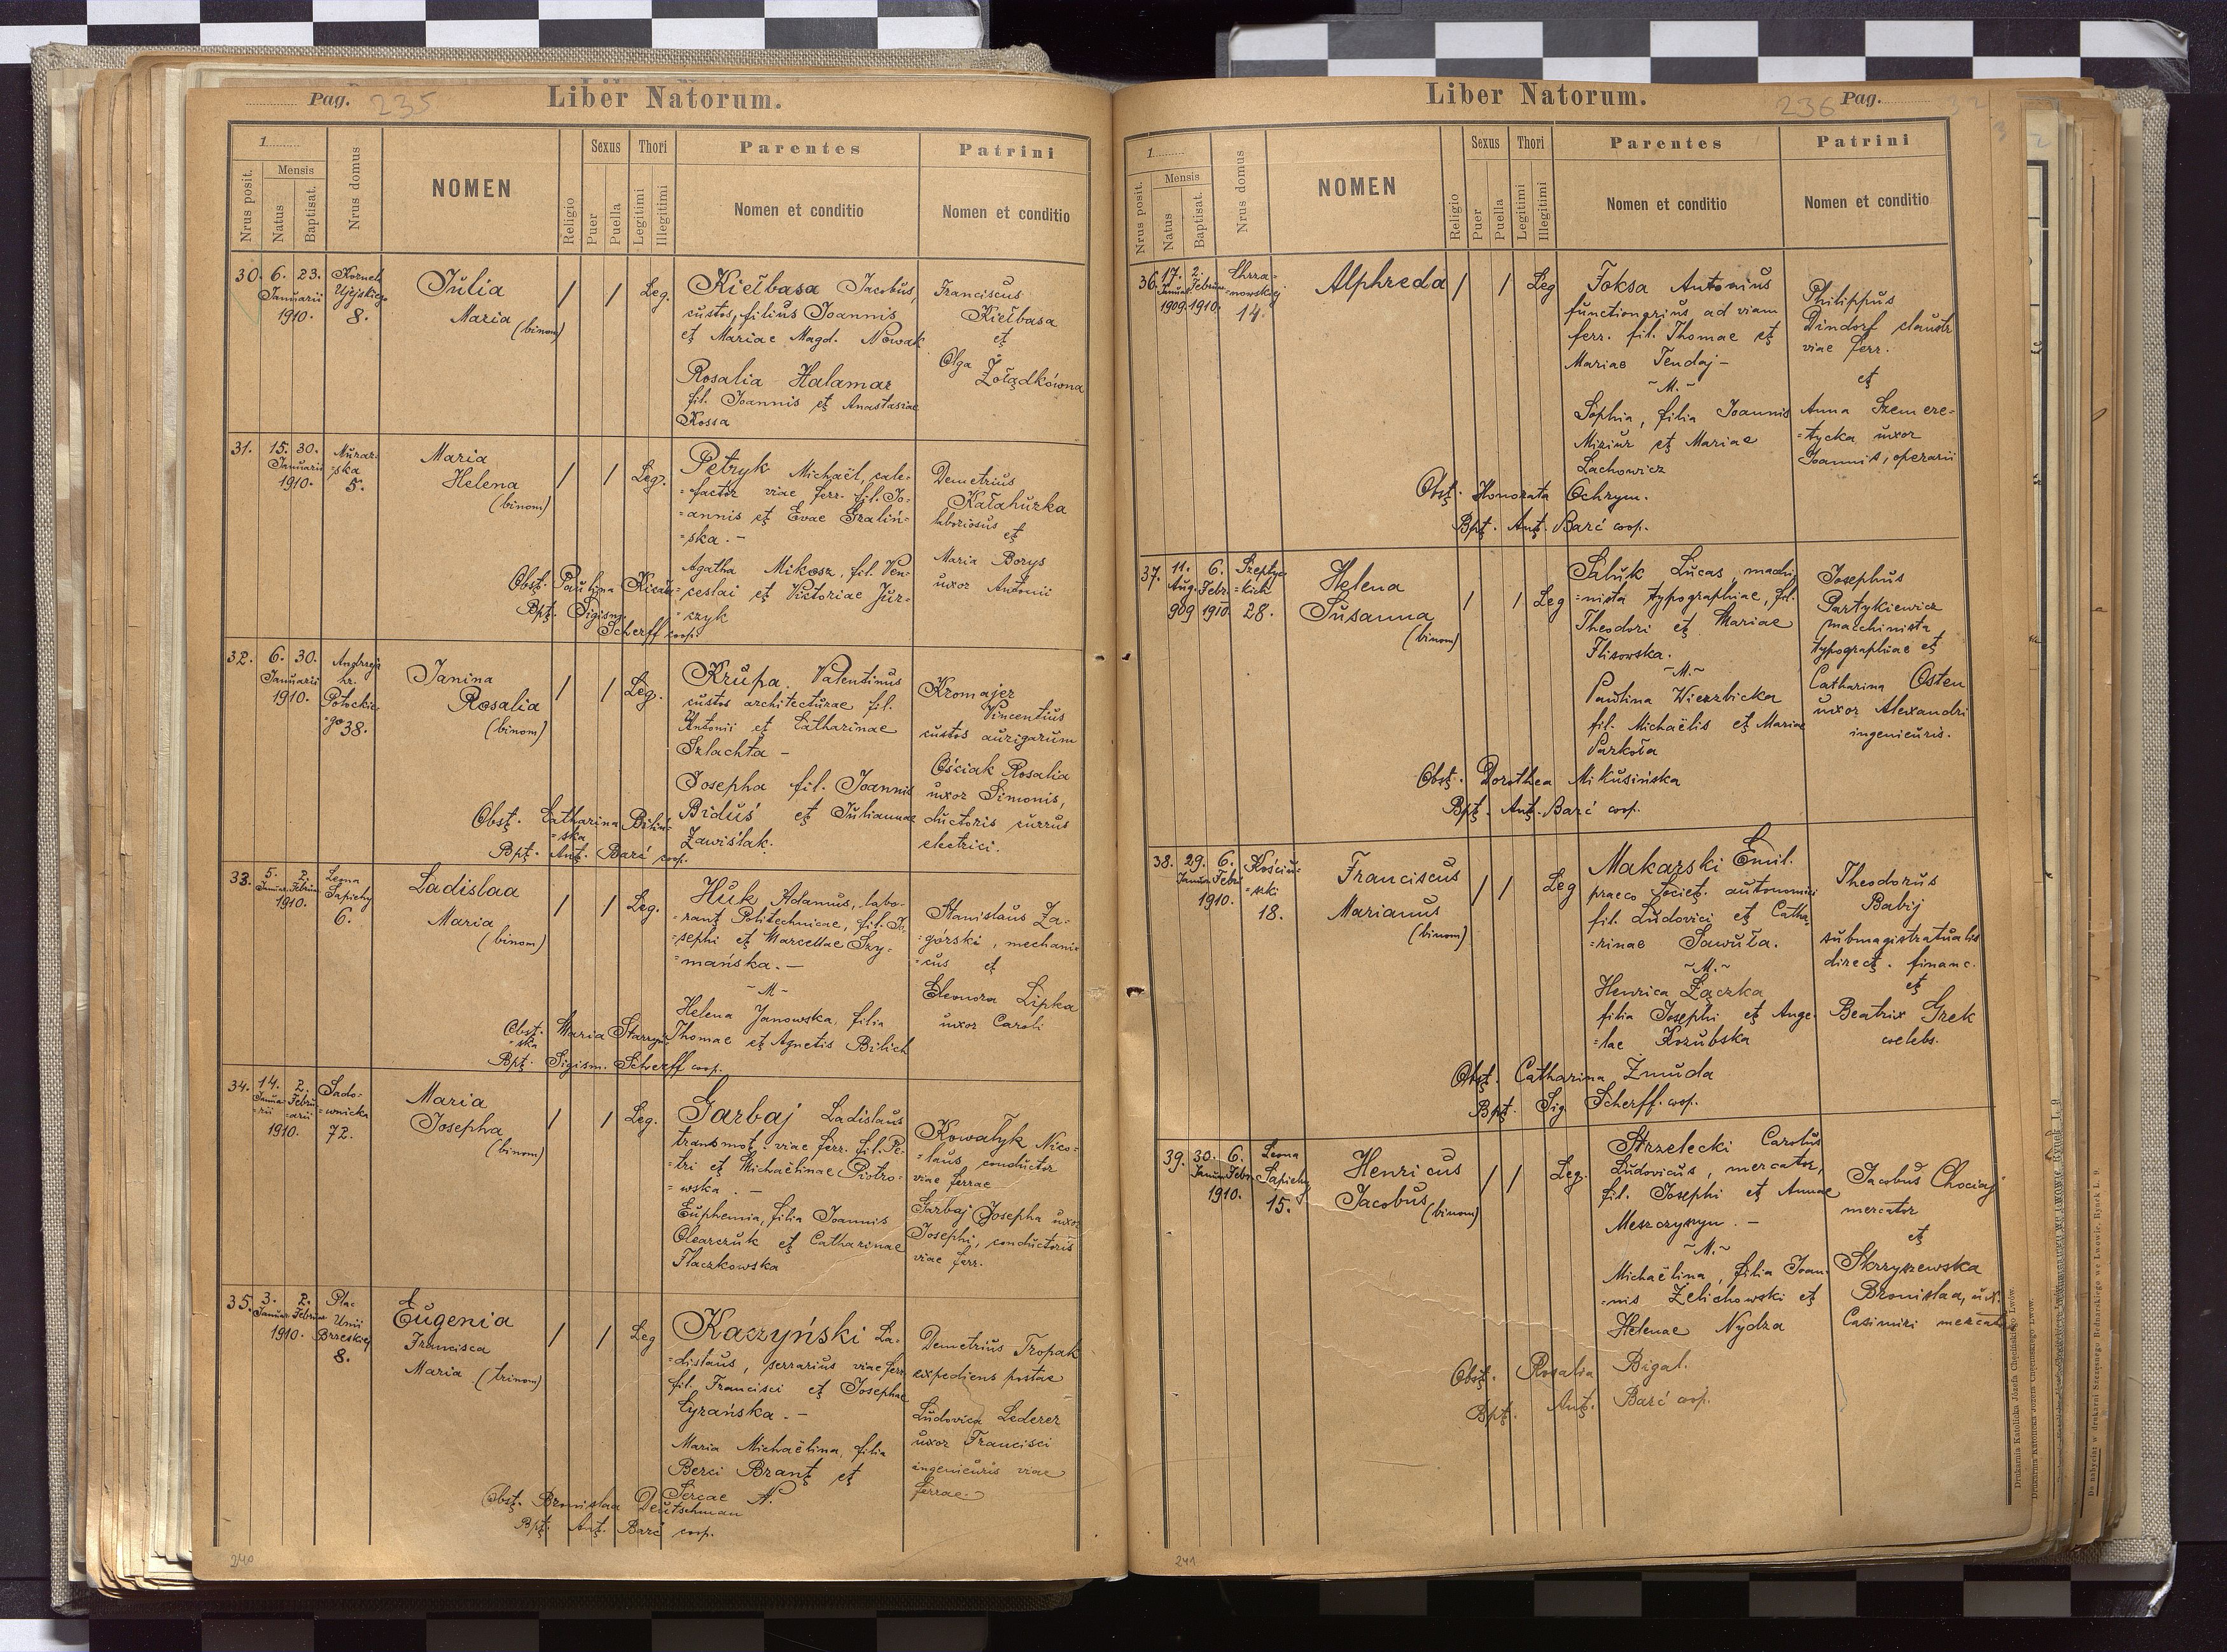 Pag. 235
Liber Natorum.
1
Nrus posit.
Mensis
Natus
Baptisat.
Nrus domus
NOMEN
Religio
Sexus
Puer
Puella
Thori
Legitimi
Illegitimi
Parentes
Nomen et conditio
Patrini
Nomen et conditio
30. 6. 23.
Januarii
1910.
Kornela
Ujejskiego
8.
Julia
Maria
(binom)
/ / Leg.
Kiełbasa Jacobus,
custos, filius Joannis
et Mariae Magd. Nowak
Rosalia Halamar
fil. Joannis et Anastasiae
Kossa
Franciscus
Kiełbasa
et
Olga
Żołądkówna
31. 15. 30.
Januarii
1910.
Murar-
=ska
5.
Maria
Helena
(binom)
/ / Leg.
Petryk Michaël, cale-
=factor viae ferr. fil. Jo-
=annis et Evae Gralin-
=ska. -
Agatha Mikosz, fil. Ven-
=ceslai et Victoriae Jur-
=czyk
Demetrius
Kałahurka
laboriosus
et
Maria Borys
uxor Antonii
Obst. Paulina
Bpt. Sigism.
Scherff coop.
32. 6. 30.
Januarii
1910.
Andrzeja
hr.
Potockie-
=go 38.
Janina
Rosalia
(binom)
/ / Leg.
Krupa Valentinus
custos architecturae fil.
Antonii et Catharinae
Szlachta -
Josepha fil. Joannis
Biduś et Juliannae
Zawiślak.
Kromajer
Vincentius
custos aurigarum
Ościak Rosalia
uxor Simonis,
ductoris currus
electrici.
Obst. Catharina Bilin-
=ska
Bpt. Ant. Barć coop.
33. 5. 2.
Januar. Februar.
1910.
Leona
Sapiehy
6.
Ladislaa
Maria
(binom)
/ / Leg.
Huk Adamus, labo-
=rant Politechnicae, fil. Jo-
=sephi et Marcellae Szy-
=mańska. -
~M~
Helena Janowska, filia
Thomae et Agnetis Bilich
Stanislaus Za-
=górski, mechani-
=cus et
Eleonora Lipka
uxor Caroli
Obst. Maria Starzyń-
=ska
Bpt. Sigism. Scherff coop.
34. 14. 2.
Janua- Febru-
=rii =arii
1910.
Sado-
=wnicka
72.
Maria
Josepha
(binom)
/ / Leg.
Garbaj Ladislaus
transmot. viae ferr. fil. Pe-
=tri et Michaëlinae Piotro-
=wska. -
Euphemia, filia Joannis
Olearczuk et Catharinae
Flaczkowska
Kowalyk Nico-
=laus, conductor
viae ferrae
Garbaj Josepha uxor
Josephi, conductoris
viae ferr.
35. 3. 2.
Januar. Februar.
1910.
Plac
Unii
Brzeskiej
8.
Eugenia
Francisca
Maria (trinom)
/ / Leg
Kaczyński La-
=dislaus, serrarius viae ferr.
fil. Francisci et Josephae
Cyrańska. -
Maria Michaëlina, filia
Berci Brant et
Sercae N.
Demetrius Tropak
expediens postae
Ludovica Lederer
uxor Francisci
ingenieuris viae
ferrae.
Obst. Bronislaa Deutschman
Bpt. Ant. Barć coop.
240
Liber Natorum.
236 Pag.
1
Nrus posit.
Mensis
Natus
Baptisat.
Nrus domus
NOMEN
Religio
Sexus
Puer
Puella
Thori
Legitimi
Illegitimi
Parentes
Nomen et conditio
Patrini
Nomen et conditio
36. 17. 2.
Januar. Februar.
1909. 1910.
Chrza-
=nowskiej
14.
Alphreda
/ / Leg
Foksa Antonius
functionarius ad viam
ferr. fil. Thomae et
Mariae Tendaj -
~M.~
Sophia, filia Joannis
Miziur et Mariae
Lachowicz
Philippus
Dindorf claustr.
viae ferr.
et
Anna Szemere-
=tycka uxor
Joannis, operarii
Obst. Honorata Ochrym.
Bpt. Ant. Barć coop.
37. 11. 6.
Aug. Febr.
909 1910
Szepty-
=ckich
28.
Helena
Susanna
(binom)
/ / Leg
Saluk Lucas, machi-
=nista typographiae, fil.
Theodori et Mariae
Flisowska.
~M~
Paulina Wierzbicka
fil. Michaëlis et Mariae
Parkoła
Josephus
Partykiewicz
macchinista
typographiae et
Catharina Osten
uxor Alexandri
ingenieuris.
Obst. Dorothea Mikusińska
Bpt. Ant. Barć coop.
38. 29. 6.
Januar Febr.
1910.
Kościu-
=szki
18.
Franciscus
Marianus
(binom)
/ / Leg
Makarski Emil.
praeco Societ. autonomici
fil. Ludovici et Catha-
=rinae Sawuła.
~M.~
Henrica Łączka
filia Josephi et Ange-
=lae Kozubska
Theodorus
Babij
submagistratualis
direct. financ.
et
Beatrix Grek
coelebs.
Obst. Catharina Żmuda
Bpt. Sig. Scherff. coop.
39. 30. 6.
Januar Febr.
1910.
Leona
Sapiehy
15.
Henricus
Jacobus (binom)
/ / Leg.
Strzelecki Carolus
Ludovicus, mercator,
fil. Josephi et Annae
Meszczyszyn. -
~M.~
Michaëlina, filia Joan-
=nis Zelichowski et
Helenae Nydza
Jacobus Chociaj
mercator
et
Skrzyszewska
Bronislaa, ux.
Casimiri mercator
Obst. Rosalia Bigal.
Bpt. Ant. Barć coop.
241
Drukarnia Katolicka Józefa Chęcińskiego Lwów.
Drukarnia Katolicka Józefa Chęcińskiego Lwów.
Do nabycia w drukarni Szczęsnego Bednarskiego we Lwowie, Rynek L. 9.